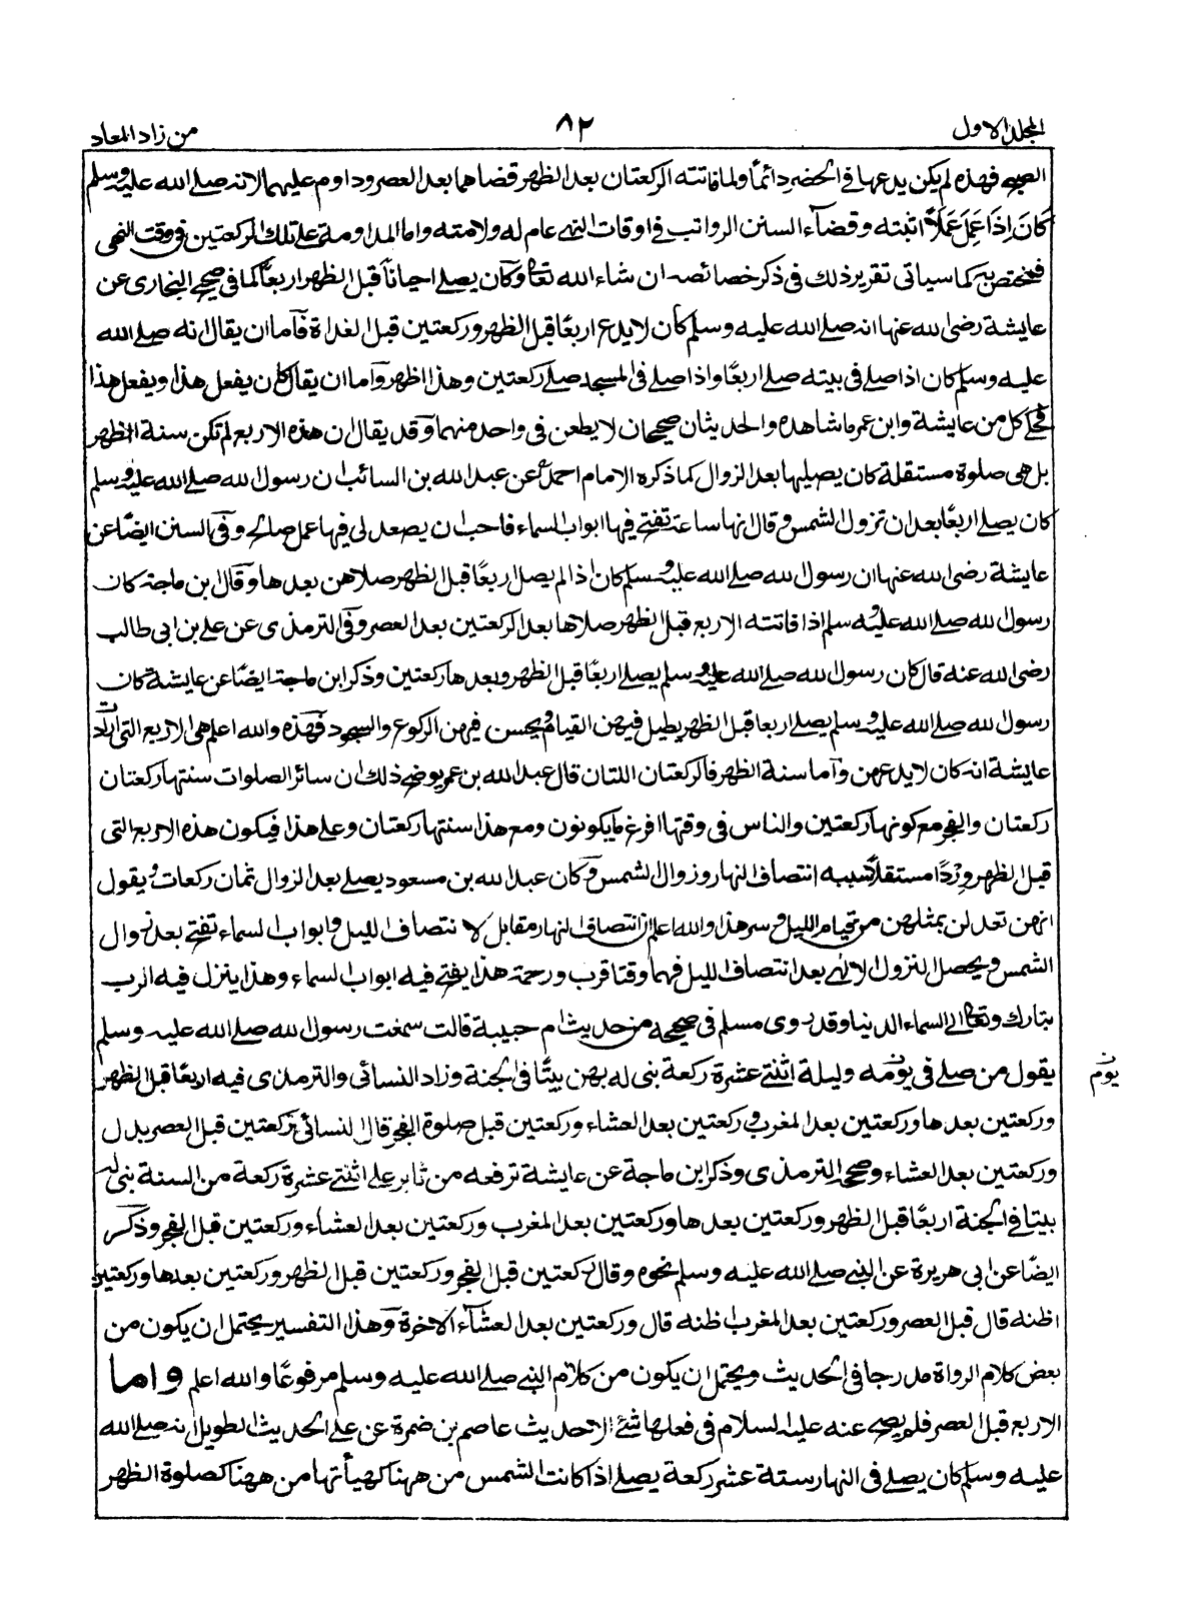 المجلد الاول
٨٢
من زاد المعاد
الصبح فهذه لم يكن يدعها فى الحضر دائمًا ولما فاتته الركعتان بعد الظهر قضاهما بعد العصر وداوم عليهما لانه صلى الله عليه وسلم
كَانَ إِذَا عَمِلَ عَمَلًا اثبته وقضاء السنن الرواتب فى اوقات النهى عام له ولامته واما المداومة على تلك الركعتين فى وقت النهى
فمختص به كما سياتى تقرير ذلك فى ذكر خصائصه ان شاء الله تعالى وكان يصلى احيانًا قبل الظهر اربعًا كما فى صحيح البخارى عن
عايشة رضى الله عنها انه صلى الله عليه وسلم كان لا يدع اربعًا قبل الظهر وركعتين قبل الغداة فاما ان يقال انه صلى الله
عليه وسلم كان اذا صلى فى بيته صلى اربعًا واذا صلى فى المسجد صلى ركعتين وهذا اظهر واما ان يقال كان يفعل هذا ويفعل هذا
فحكى كل من عايشة وابن عمر ما شاهده والحديثان صحيحان لا يطعن فى واحد منهما وقد يقال ان هذه الاربع لم تكن سنة الظهر
بل هى صلوة مستقلة كان يصليها بعد الزوال كما ذكره الامام احمد عن عبد الله بن السائب ان رسول الله صلى الله عليه وسلم
كان يصلى اربعًا بعد ان تزول الشمس وقال انها ساعة تفتح فيها ابواب السماء فاحب ان يصعد لى فيها عمل صالح وفى السنن ايضًا عن
عايشة رضى الله عنها ان رسول الله صلى الله عليه وسلم كان اذا لم يصل اربعًا قبل الظهر صلاهن بعدها وقال ابن ماجة كان
رسول الله صلى الله عليه وسلم اذا فاتته الاربع قبل الظهر صلاها بعد الركعتين بعد العصر وفى الترمذى عن على بن ابى طالب
رضى الله عنه قال كان رسول الله صلى الله عليه وسلم يصلى اربعًا قبل الظهر وبعدها ركعتين وذكر ابن ماجة ايضًا عن عايشة كان
رسول الله صلى الله عليه وسلم يصلى اربعا قبل الظهر يطيل فيهن القيام ويحسن فيهن الركوع والسجود فهذه والله اعلم هى الاربع التى ارادت
عايشة انه كان لا يدعهن واما سنة الظهر فالركعتان اللتان قال عبد الله بن عمر يوضح ذلك ان سائر الصلوات سنتها ركعتان
ركعتان والفجر مع كونها ركعتين والناس فى وقتها افرغ ما يكونون ومع هذا سنتها ركعتان وعلى هذا فيكون هذه الاربع التى
قبل الظهر وِرْدًا مستقلًا سببه انتصاف النهار وزوال الشمس وكان عبد الله بن مسعود يصلى بعد الزوال ثمان ركعات ويقول
انهن تعدلن بمثلهن من قيام الليل وسر هذا والله اعلم ان انتصاف النهار مقابل لانتصاف الليل وابواب السماء تفتح بعد زوال
الشمس ويحصل النزول الالهى بعد انتصاف الليل فهما وقتا قرب ورحمة هذا يفتح فيه ابواب السماء وهذا ينزل فيه الرب
تبارك وتعالى الى السماء الدنيا وقد روى مسلم فى صحيحه من حديث ام حبيبة قالت سمعت رسول الله صلى الله عليه وسلم
يقول من صلى فى يومه وليلة اثنتى عشرة ركعة بنى له بهن بيتًا فى الجنة وزاد النسائى والترمذى فيه اربعًا قبل الظهر
يوم
وركعتين بعدها وركعتين بعد المغرب وركعتين بعد العشاء وركعتين قبل صلوة الفجر قال النسائى وركعتين قبل العصر بدل
وركعتين بعد العشاء وصححه الترمذى وذكر ابن ماجة عن عايشة ترفعه من ثابر على اثنتى عشرة ركعة من السنة بنى له
بيتا فى الجنة اربعًا قبل الظهر وركعتين بعدها وركعتين بعد المغرب وركعتين بعد العشاء وركعتين قبل الفجر وذكر
ايضًا عن ابى هريرة عن النبى صلى الله عليه وسلم نحوه وقال ركعتين قبل الفجر وركعتين قبل الظهر وركعتين بعدها وركعتين
اظنه قال قبل العصر وركعتين بعد المغرب اظنه قال وركعتين بعد العشاء الاخرة وهذا التفسير يحتمل ان يكون من
بعض كلام الرواة مدرجا فى الحديث ويحتمل ان يكون من كلام النبى صلى الله عليه وسلم مرفوعًا والله اعلم واما
الاربع قبل العصر فلم يصح عنه عليه السلام فى فعلها شئ الا حديث عاصم بن ضمرة عن على الحديث الطويل انه صلى الله
عليه وسلم كان يصلى فى النهار ستة عشر ركعة يصلى اذا كانت الشمس من ههنا كهيأتها من ههنا كصلوة الظهر